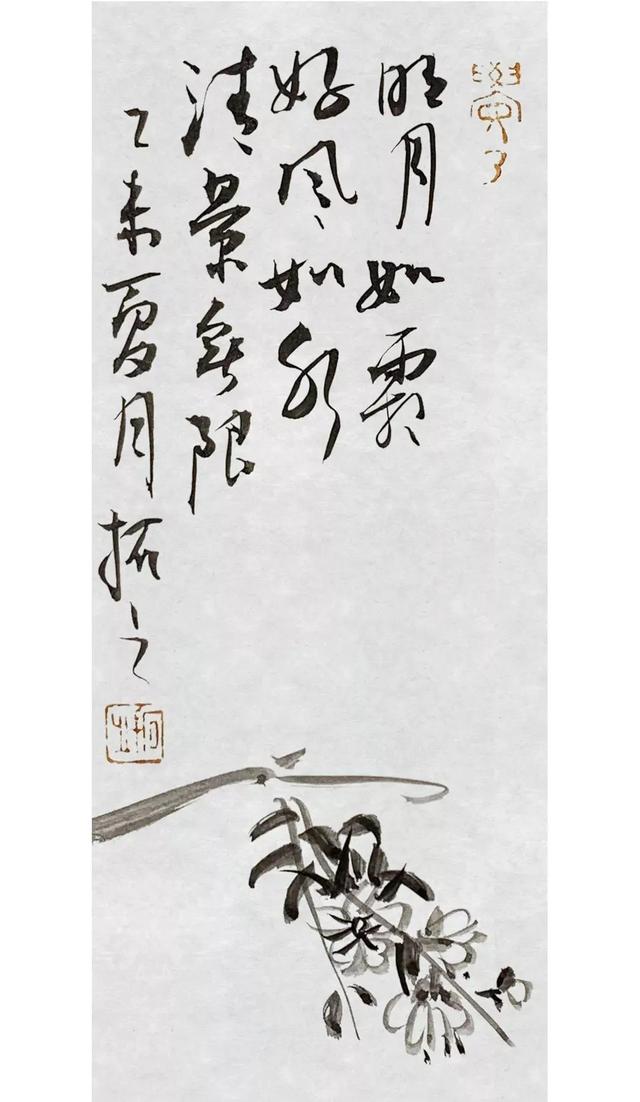 明月如霜
好风如水
清景无限
乙未夏月拓之